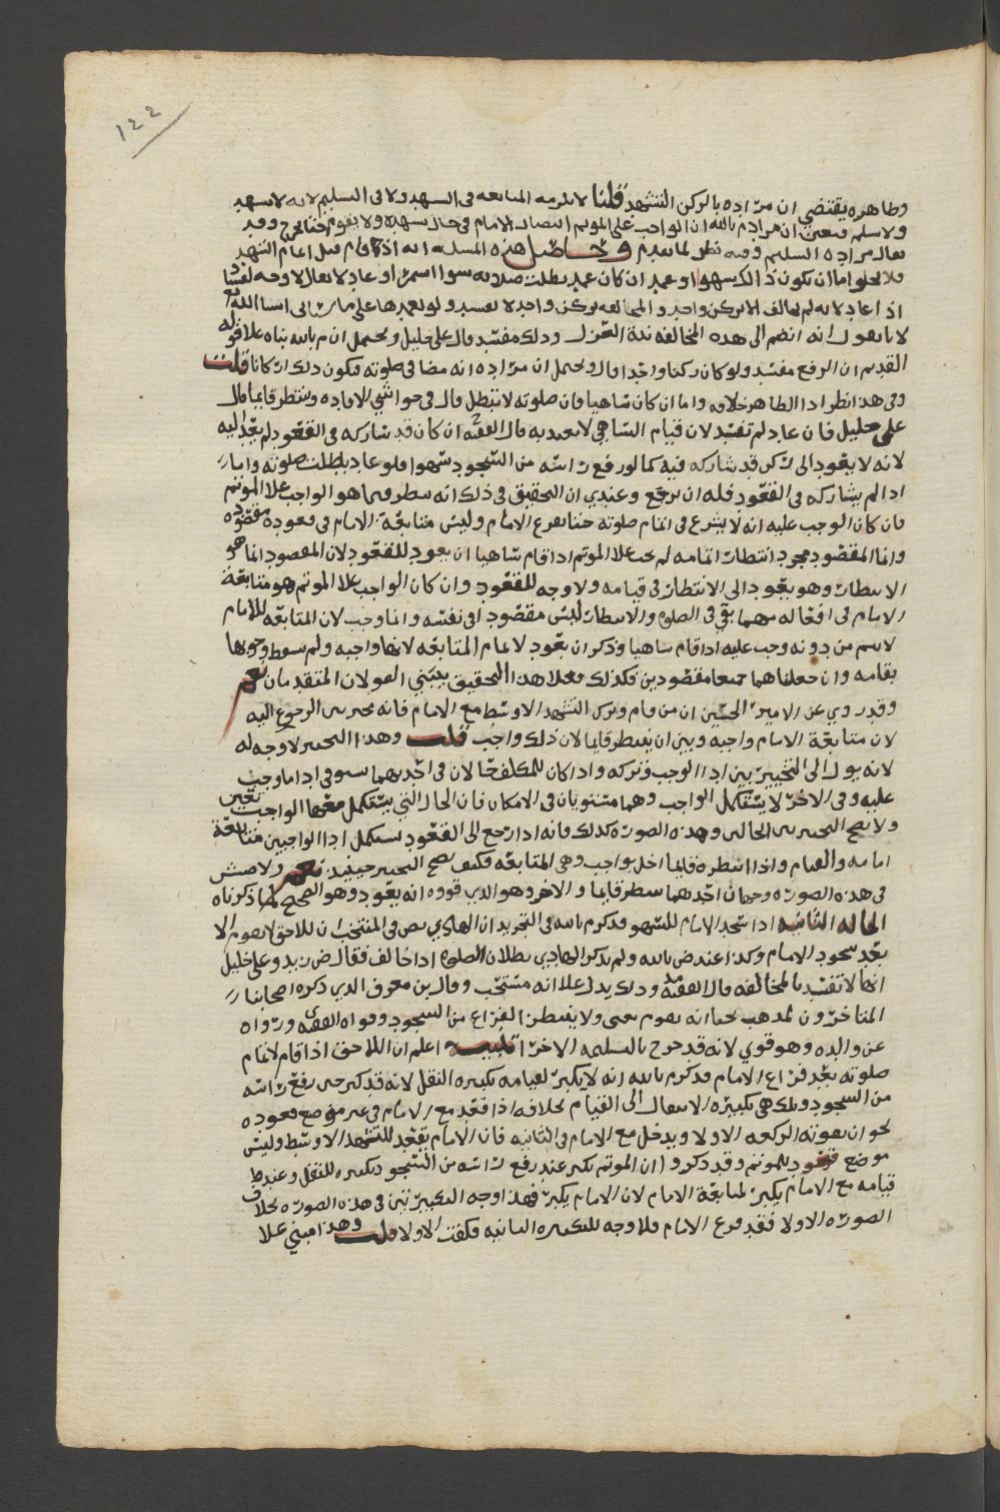 ١٤٤
وظاهره يقتضي ان مراده بالركن التشهد قلنا لا يلزمه المتابعه في التشهد ولا في التسليم لانه لا يتشهد
ولا يسلم فتعين ان مراد م بالله ان الواجب على المؤتم انتظار الامام في حال تشهده ولا يقوم حتى يخرج وقد
يقال مراده التسليم وفيه نظر لما تقدم وحاصل هذه المسله انه اذا قام قبل اتمام التشهد
فلا يخلوا اما ان يكون ذلك سهوا او عمدا ان كان عمدا بطلت صلاته سوا استمر او عاد لا يقال لا وجه لفساد
اذا عاد لانه لم يخالف الا بركن واحد والمخالفه بركن واحد لا تفسد ولو تعمدها على ما ياتي ان شا الله تع
لانا نقول انه انضم الى هذه المخالفه نية العزل وذلك مفسد قال علي خليل ويحتمل ان م بالله بناه علا قوله
القديم ان الرفع مفسد ولو كان ركنا واحدا قال ويحتمل ان مراده انه مضا في صلوته فيكون ذلك اركانا قلت
وفي هذا نظر اذ الظاهر خلافه واما ان كان ساهيا فان صلوته لا تبطل قال في حواشي الافاده وينتظر قايما قال
علي خليل فان عاد لم تفسد لان قيام الساهي لا يعتد به قال الفقيه ان كان قد شاركه في القعود لم يعد اليه
لانه لا يعود الى ركن قد شاركه فيه كما لو رفع راسه من السجود سهوا فلو عاد بطلت صلوته واما
اذا لم يشاركه في القعود فله ان يرجع وعندي ان التحقيق في ذلك انه ينظر فيما هو الواجب علا المؤتم
فان كان الوجب عليه انه لا يشرع في اتمام صلوته حتى يفرغ الامام وليس متابعة الامام في قعوده مقصوده
وانما المقصود مجرد انتظار اتمامه لم يجب علا المؤتم اذا قام ساهيا ان يعود للقعود لان المقصود انما هو
الانتظار وهو يعود الى الانتظار في قيامه ولا وجه للقعود وان كان الواجب علا المؤتم هو متابعة
الامام في افعاله مهما بقي في الصلوه والانتظار ليس مقصودا في نفسه وانما وجب لان المتابعه للامام
لا تتم من دونه وجب عليه اذا قام ساهيا وذكر ان يعود لاتمام المتابعه لانها واجبه ولم يسقط وجوبها
بقيامه وان جعلناهما جميعا مقصودين فكذلك فعلا هذا التحقيق ينبني القولان المتقدمان نعم
وقد روي عن الامير الحسين ان من قام وترك التشهد الاوسط مع الامام فانه مخير بين الرجوع اليه
لان متابعة الامام واجبه وبين ان ينتظر قايما لان ذلك واجب قلت وهذا التخيير لا وجه له
لانه يول الى التخيير بين ادا الوجب وتركه واذا كان للمكلف حالان في احديهما يستوفي ادا ما وجب
عليه وفي الاخرا لا يستكمل الواجب وهما مستويان في الامكان فان الحال التي يستكمل معها الواجب تتعين
ولا يصح التخيير بين الحالين وهذه الصوره كذلك فانه اذا رجع الى القعود استكمل ادا الواجبين متابعة
امامه والقيام واذا انتظره قايما اخل بواجب وهي المتابعه فكيف يصح التخيير حينيذ نعم
في هذه الصوره وجهان احدهما ينتظر قايما والاخر وهو الذي قووه انه يعود وهو الصحيح لما ذكرناه
الحاله الثانيه اذا سجد الامام للسهو فذكر م بالله في التجريد ان الهادي نص في المنتخب ان للاحق لا يقوم الا
بعد سجود الامام وكذا عند ض بالله ولم يذكر الهادي بطلان الصلوه اذا خالف فقال ض زيد وعلي خليل
انها لا تفسد بالمخالفه قال الفقيه وذلك يدل علا انه مستحب وقال بن معرف الذي ذكره اصحابنا
المتاخرون للمذهب انه يقوم يعني ولا ينتظر الفراغ من السجود وقواه الفقيه ورواه
عن والده وهو قوي لانه قد خرج بالتسليمه الاخرا تنبيه اعلم ان اللاحق اذا قام لاتمام
صلوته بعد فراغ الامام فذكر م بالله انه لا يكبر لقيامه تكبيره النقل لانه قد كبر حين رفع راسه
من السجود وتلك هي تكبيره الانتقال الى القيام بخلافه اذا قعد مع الامام في غير موضع قعوده
نحو ان يفوته الركعه الاولا ويدخل مع الامام في الثانيه فان الامام يقعد للتشهد الاوسط وليس
موضع قعود للمؤتم وقد ذكروا ان المؤتم يكبر عند رفع راسه من السجود تكبيره للنقل وعند
قيامه مع الامام يكبر لمتابعة الامام لان الامام يكبر فهذا وجه التكبيرتين في هذه الصوره بخلاف
الصوره الاولا فقد فرغ الامام فلا وجه للتكبيره الثانيه فكفت الاولا قلت وهذا مبني علا